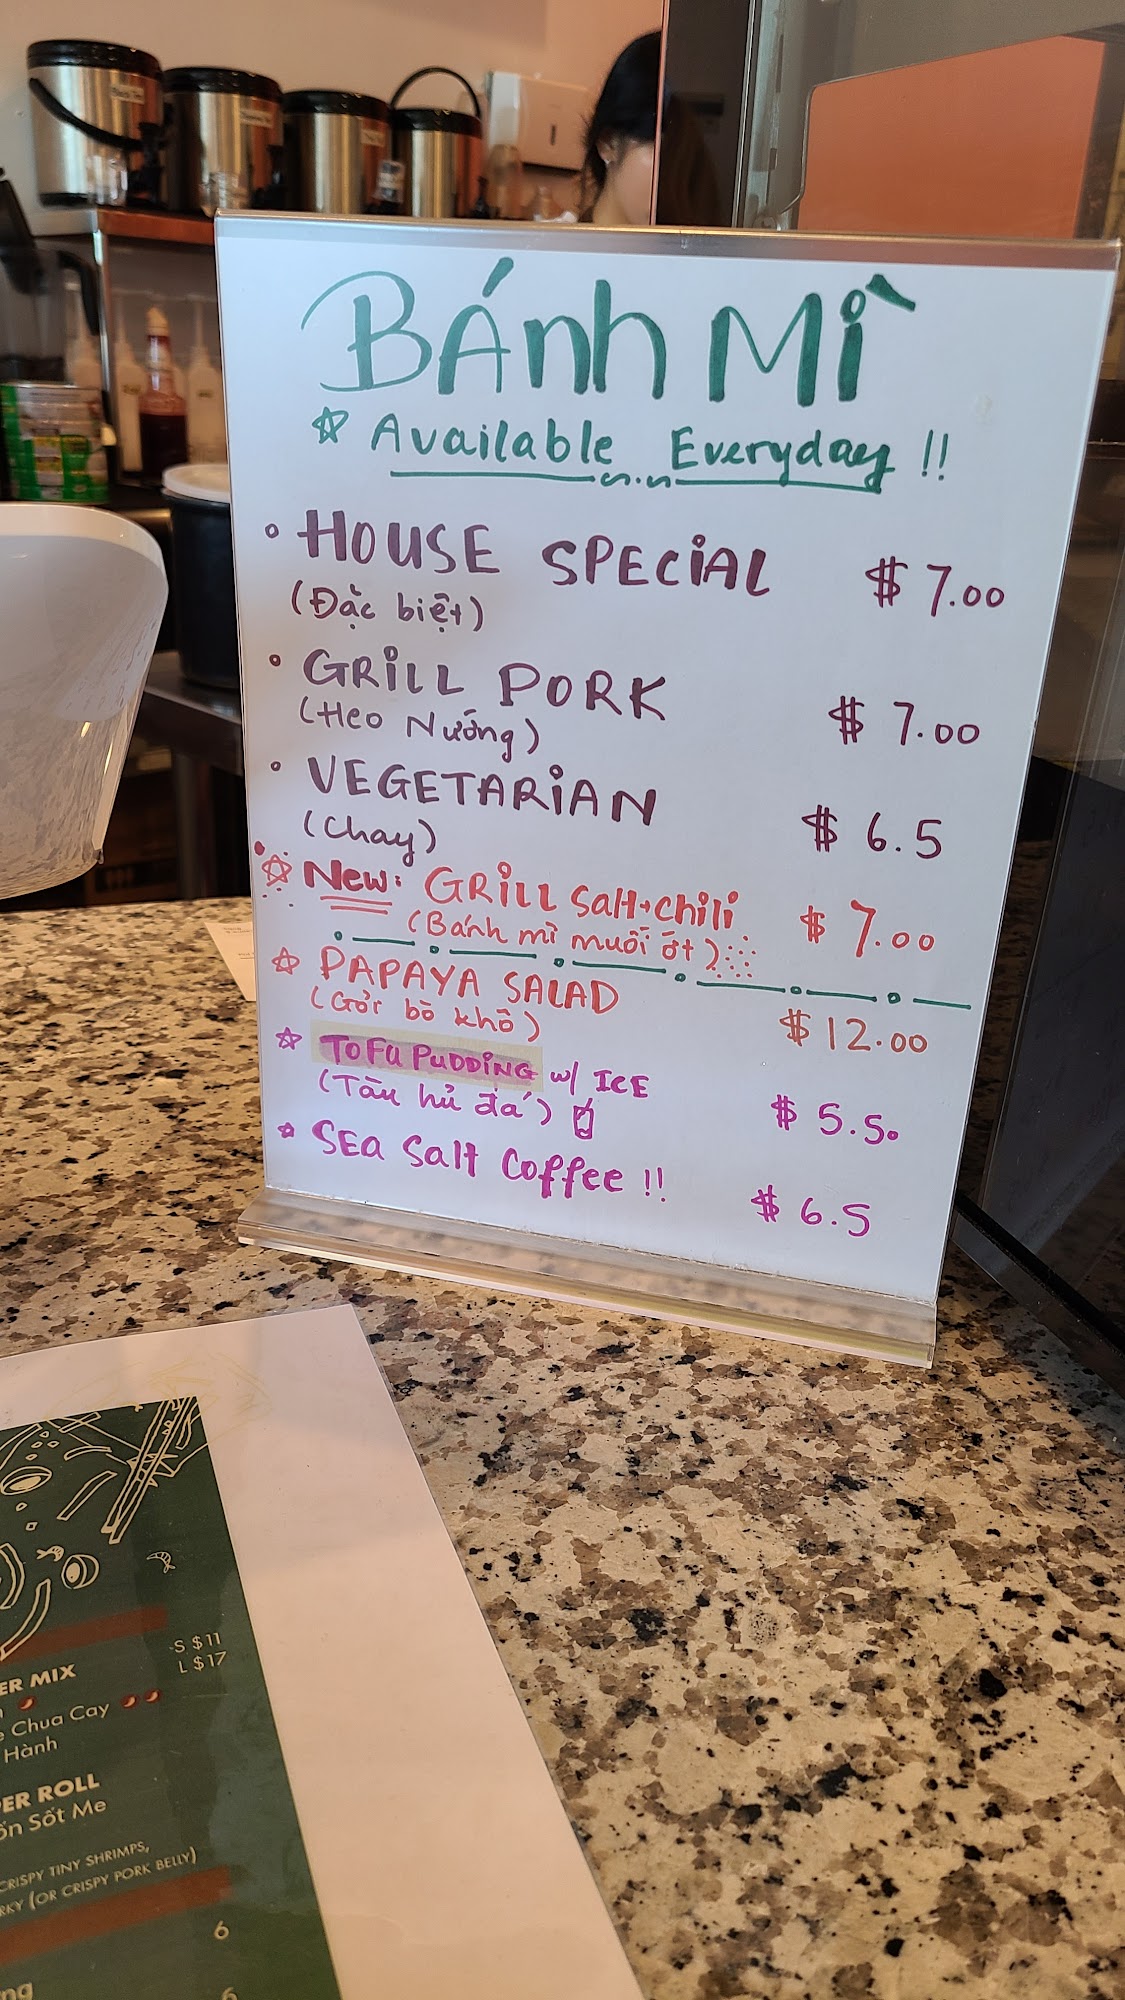 BÁnh Mì
Available Everyday !!
HOUSE SPECiAL $ 7.00
(Đặc biệt)
GRiLL PORK $ 7.00
(Heo Nướng)
VEGETARiAN $ 6.5
(Chay)
New: GRiLL Salt+Chili $ 7.00
(Bánh mì muối ớt)
PAPAYA SALAD $ 12.00
(Gỏi bò khô)
ToFu PuDDiNG w/ ICE $ 5.50
(Tàu hủ đá)
SEa Salt Coffee !! $ 6.5
-S $11
L $17
MIX
Chua Cay
Hành
ROLL
Sốt Me
CRISPY TINY SHRIMPS,
(OR CRISPY PORK BELLY)
6
6